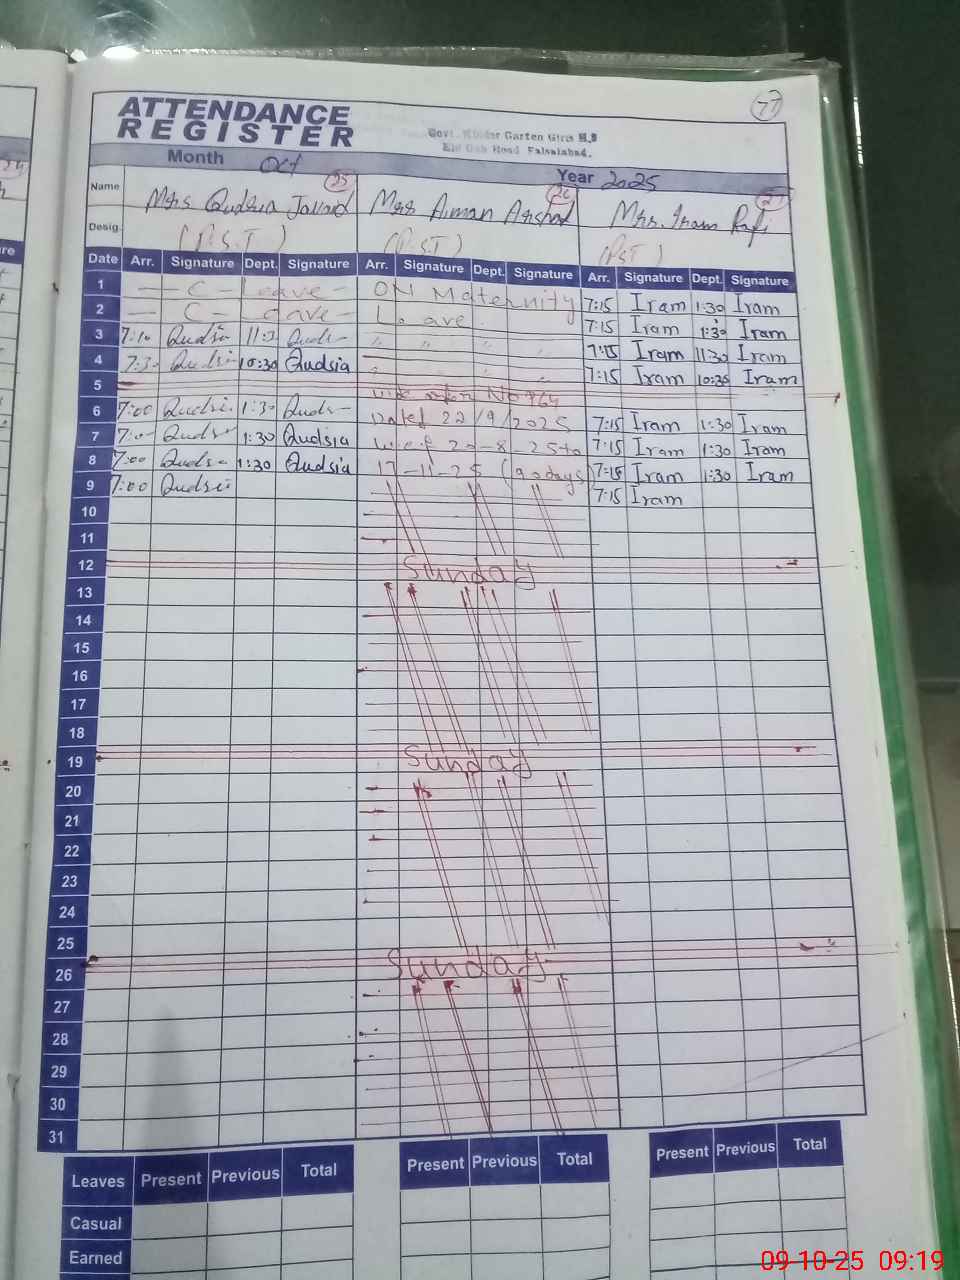 77
ATTENDANCE
REGISTER
Govt. Kinder Garten Girls H.S
Eid Gah Road Faisalabad.
Month Oct Year 2025
Name 25 26 27
Mrs Qudsia Javaid Mrs Aiman Arshad Mrs. Iram Rafi
Desig. (P.S.T) (P.S.T) (PST)
Date Arr. Signature Dept. Signature Arr. Signature Dept. Signature Arr. Signature Dept. Signature
1 — C — Leave — ON Maternity 7:15 Iram 1:30 Iram
2 — C — Leave — Leave 7:15 Iram 1:30 Iram
3 7:10 Qudsia 11:3 Quds- " " " " 7:15 Iram 11:30 Iram
4 7:30 Qudsia 10:30 Qudsia " " 7:15 Iram 10:30 Iram
5 No 764
6 7:00 Qudsi. 1:30 Quds- Dated 22/9/2025 7:15 Iram 1:30 Iram
7 7:0- Quds- 1:30 Qudsia w.e.f 20-8-25 to 7:15 Iram 1:30 Iram
8 7:00 Quds- 1:30 Qudsia 17-11-25 (90 days) 7:15 Iram 1:30 Iram
9 7:00 Qudsi 7:15 Iram
10
11
12 Sunday
13
14
15
16
17
18
19 Sunday
20
21
22
23
24
25
26 Sunday
27
28
29
30
31
Leaves Present Previous Total Present Previous Total Present Previous Total
Casual
Earned
09-10-25 09:19